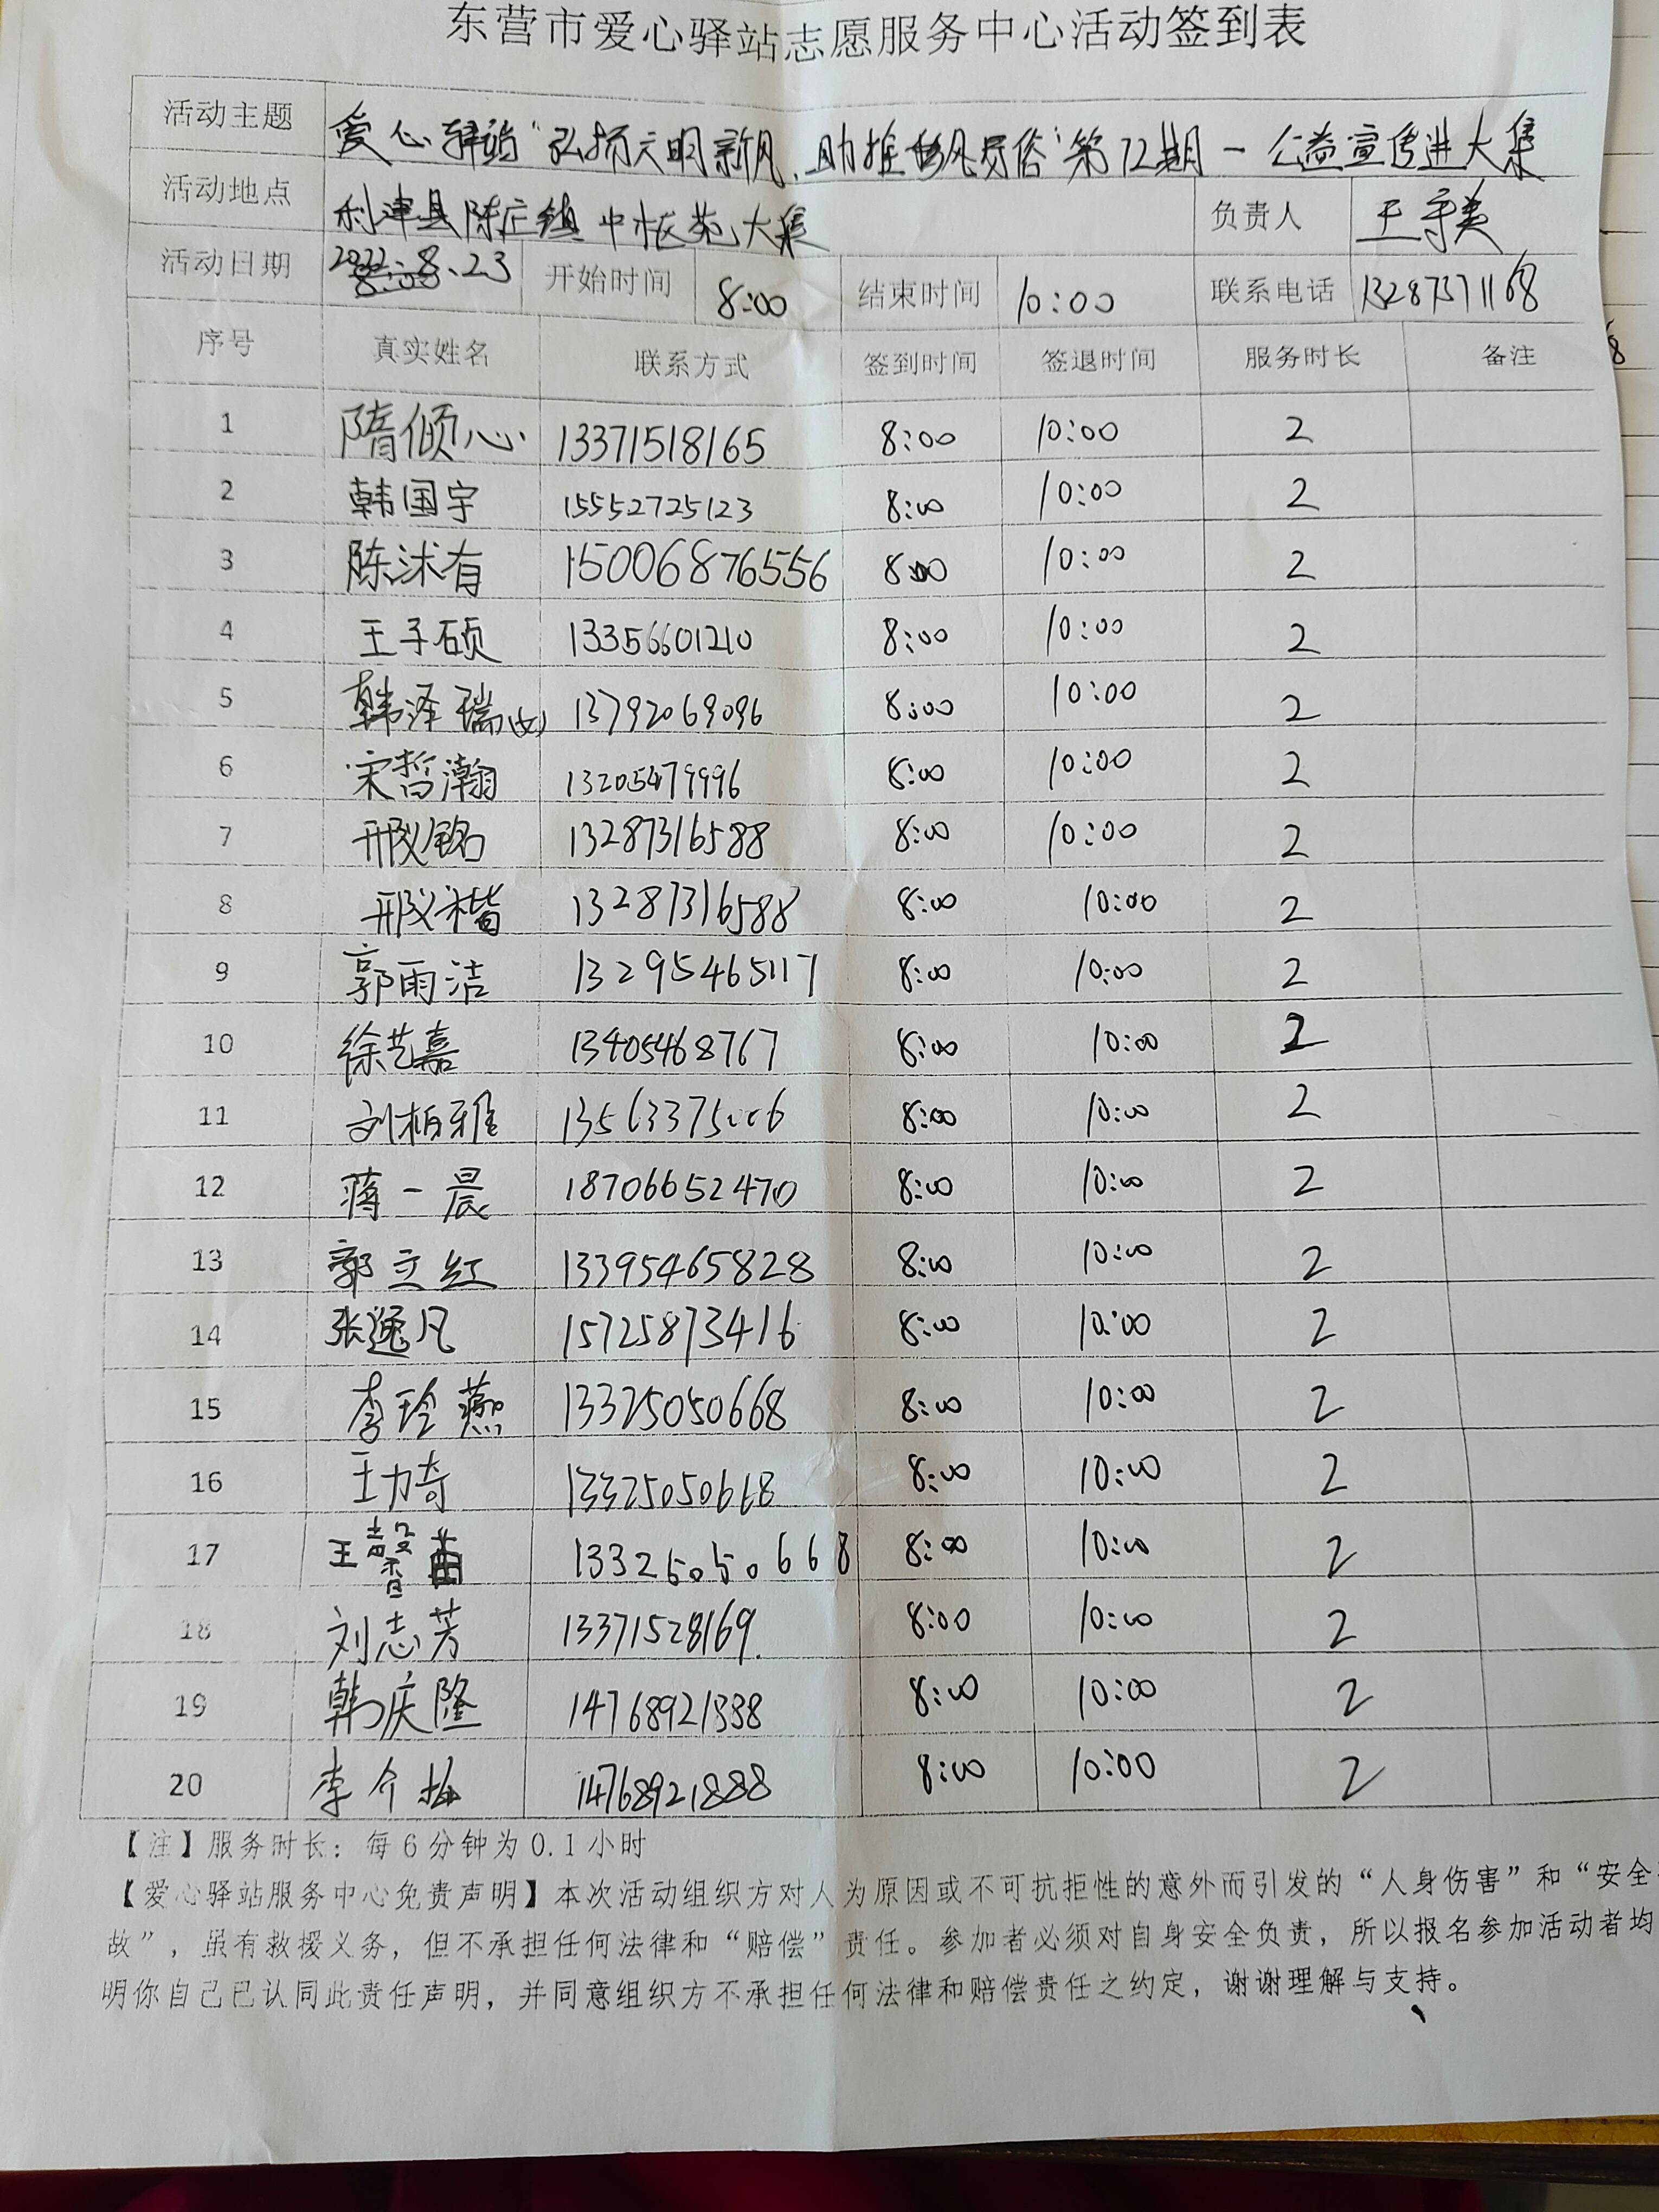 东营市爱心驿站志愿服务中心活动签到表
活动主题 爱心驿站“弘扬文明新风、助推移风易俗”第72期-公益宣传进大集
活动地点 利津县陈庄镇中心苑大集 负责人
活动日期 2022.8.23 开始时间 8:00 结束时间 10:00 联系电话 13287371168
序号 真实姓名 联系方式 签到时间 签退时间 服务时长 备注
1 隋倾心 13371518165 8:00 10:00 2
2 韩国宇 15552725123 8:00 10:00 2
3 陈沭有 15006876556 8:00 10:00 2
4 王子硕 13356601210 8:00 10:00 2
5 韩泽瑞(女) 13792069096 8:00 10:00 2
6 宋哲瀚 13205479996 8:00 10:00 2
7 邢义铭 13287316588 8:00 10:00 2
8 邢义楷 13287316588 8:00 10:00 2
9 郭雨洁 13295465117 8:00 10:00 2
10 徐艺嘉 13405468767 8:00 10:00 2
11 刘柏雅 8:00 10:00 2
12 蒋一晨 18706652470 8:00 10:00 2
13 郭立红 13395465828 8:00 10:00 2
14 张逸凡 15725873416 8:00 10:00 2
15 李玲燕 13325050668 8:00 10:00 2
16 王力奇 13325050668 8:00 10:00 2
17 王馨苗 13325050668 8:00 10:00 2
18 刘志芳 13371528169. 8:00 10:00 2
19 韩庆隆 14768921338 8:00 10:00 2
20 李介 14768921888 8:00 10:00 2
【注】服务时长：每6分钟为0.1小时
【爱心驿站服务中心免责声明】本次活动组织方对人为原因或不可抗拒性的意外而引发的“人身伤害”和“安全
故”，虽有救援义务，但不承担任何法律和“赔偿”责任。参加者必须对自身安全负责，所以报名参加活动者均
明你自己已认同此责任声明，并同意组织方不承担任何法律和赔偿责任之约定，谢谢理解与支持。